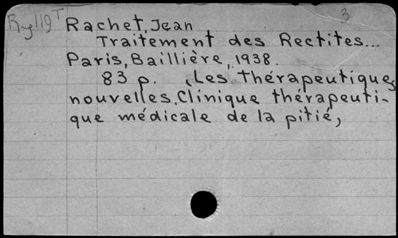 3
Rachet, Jean
Traitement des Rectites...
Paris, Baillière, 1938.
83 p. (Les Thérapeutiques
nouvelles. Clinique thérapeuti-
que médicale de la pitié,